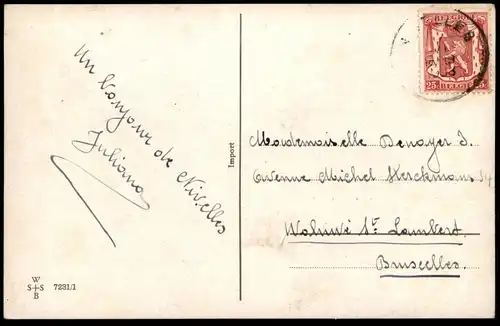 Un bonjour de Nivelles
Juliana
W
S+S
B
7231/1
Import
BELGIQUE
25c
BELGIE
Mademoiselle Denayer J.
Avenue Michel Herckmans 14
Woluwé St. Lambert.
Bruxelles.